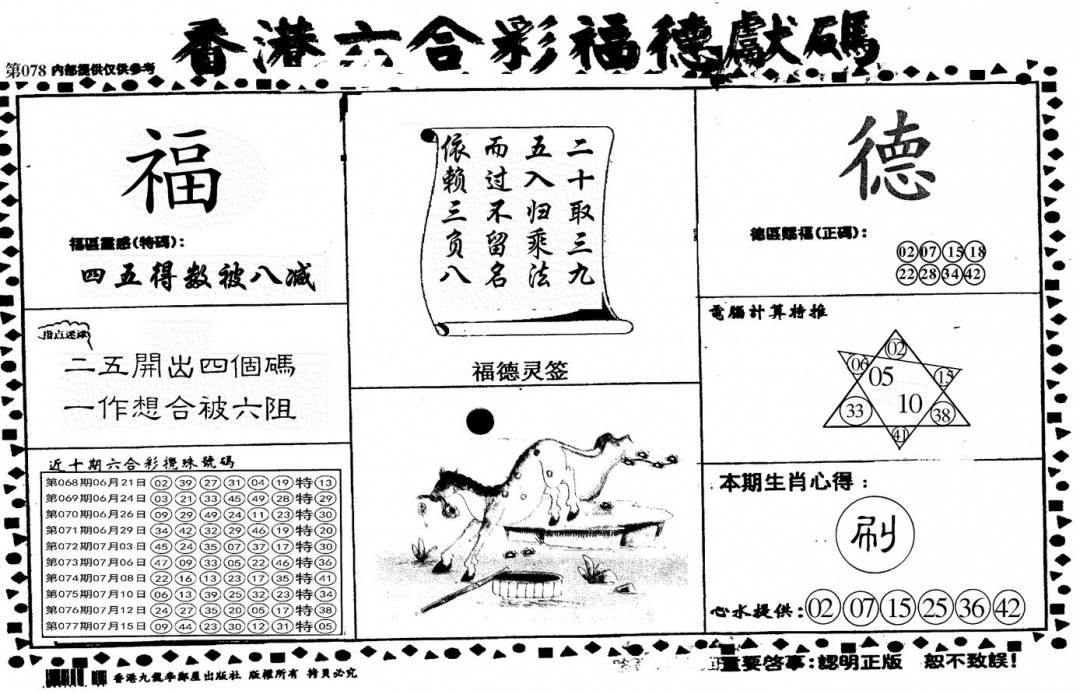 香港六合彩福德獻碼
第078 内部提供仅供参考
福
福區靈感(特碼):
四五得数被八减
指点迷津
二五開出四個碼
一作想合被六阻
近十期六合彩攪珠號碼
第068期06月21日 02 39 27 31 04 19 特 13
第069期06月24日 03 21 33 45 49 28 特 29
第070期06月26日 09 29 49 24 11 23 特 30
第071期06月29日 34 42 32 29 46 19 特 20
第072期07月03日 45 24 35 07 37 17 特 30
第073期07月06日 47 09 33 05 22 46 特 36
第074期07月08日 22 16 13 23 17 35 特 41
第075期07月10日 06 13 39 25 32 23 特 34
第076期07月12日 24 27 35 20 05 17 特 38
第077期07月15日 09 44 23 30 12 31 特 05
二十取三九
五入归乘法
而过不留名
依赖三负八
福德灵签
德
德區賜福(正碼):
02 07 15 18
22 28 34 42
電腦計算特推
02
06 05 15
33 10 38
41
本期生肖心得:
刷
心水提供: 02 07 15 25 36 42
香港九龍李鄭屋出版社 版權所有 拷貝必究
重要啓事:認明正版 恕不致誤!